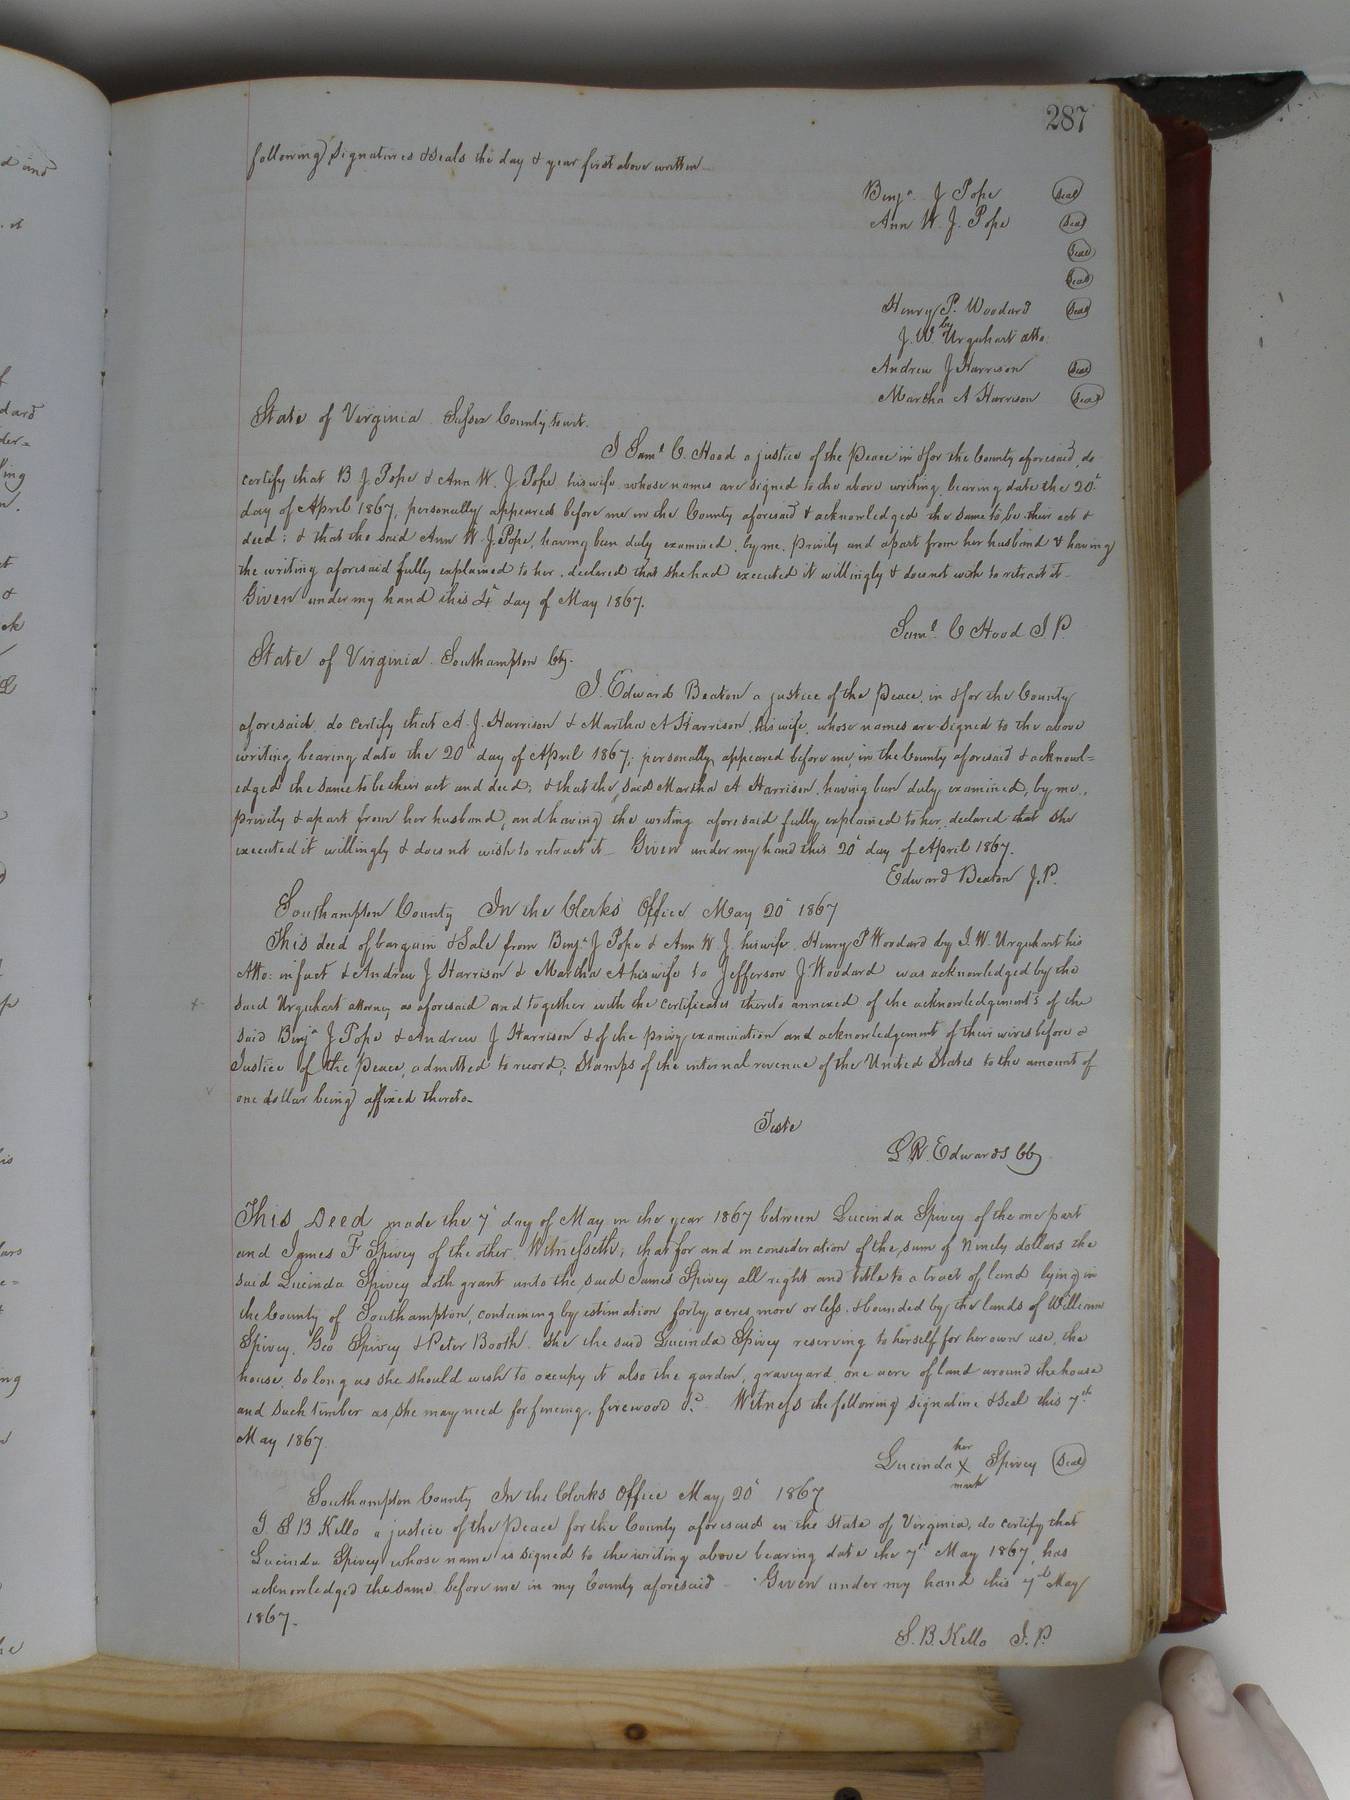 287
following signatures & seals the day & year first above written
Benja. J Pope Seal
Ann W. J. Pope Seal
Seal
Seal
Henry P. Woodard Seal
by
J. W. Urquhart atto.
Andrew J Harrison Seal
Martha A Harrison Seal
State of Virginia Sussex County, to wit.
I Saml. C. Hood a justice of the Peace in & for the County aforesaid, do
certify that B J. Pope & Ann W. J. Pope his wife whose names are signed to the above writing bearing date the 20th
day of April 1867, personally appeared before me in the County aforesaid & acknowledged the same to be their act &
deed; & that the said Ann W. J. Pope, having been duly examined, by me, privily and apart from her husband & having
the writing aforesaid fully explained to her, declared that she had executed it willingly & does not wish to retract it
Given under my hand this 4th day of May 1867.
Saml. C Hood J. P.
State of Virginia. Southampton Cty.
I. Edward Beaton a justice of the Peace, in & for the County
aforesaid, do certify that A. J. Harrison & Martha A Harrison, his wife, whose names are signed to the above
writing bearing date the 20th day of April 1867, personally appeared before me, in the County aforesaid & acknowl=
edged the same to be their act and deed; & that the said Martha A Harrison, having been duly examined, by me,
privily & apart from her husband, and having the writing aforesaid fully explained to her, declared that she
executed it willingly & does not wish to retract it – Given under my hand this 20th day of April 1867.
Edward Beaton J.P.
Southampton County In the Clerks Office May 20th 1867
This deed of bargain & Sale from Benja. J Pope & Ann W. J. his wife, Henry P Woodard by J. W. Urquhart his
Atto: in fact & Andrew J Harrison & Martha A his wife to Jefferson J. Woodard was acknowledged by the
said Urquhart attorney as aforesaid and together with the certificates thereto annexed of the acknowledgements of the
said Benja J Pope & Andrew J Harrison & of the privy examination and acknowledgement of their wives before a
Justice of the Peace, admitted to record; Stamps of the internal revenue of the United States to the amount of
one dollar being affixed thereto–
Teste
L R. Edwards CC
This Deed made the 7th day of May in the year 1867 between Lucinda Spivey of the one part
and James F Spivey of the other. Witnesseth; that for and in consideration of the sum of Ninety dollars the
said Lucinda Spivey doth grant unto the said James Spivey all right and title to a tract of land lying in
the County of Southampton, containing by estimation forty acres more or less, & bounded by the lands of William
Spivey, Geo Spivey & Peter Booth. She the said Lucinda Spivey reserving to herself for her own use, the
house, so long as she should wish to occupy it also the garden, graveyard one acre of land around the house
and such timber as she may need for fencing, firewood &c. Witness the following signature & seal this 7th
May 1867.
her
Lucinda X Spivey Seal
mark
Southampton County In the Clerks Office May 20th 1867
I. S B Kello a justice of the Peace for the County aforesaid in the State of Virginia, do certify that
Lucinda Spivey whose name is signed to the writing above bearing date the 7th May 1867, has
acknowledged the same before me in my County aforesaid – Given under my hand this 7th May
1867.
S. B. Kello J. P.